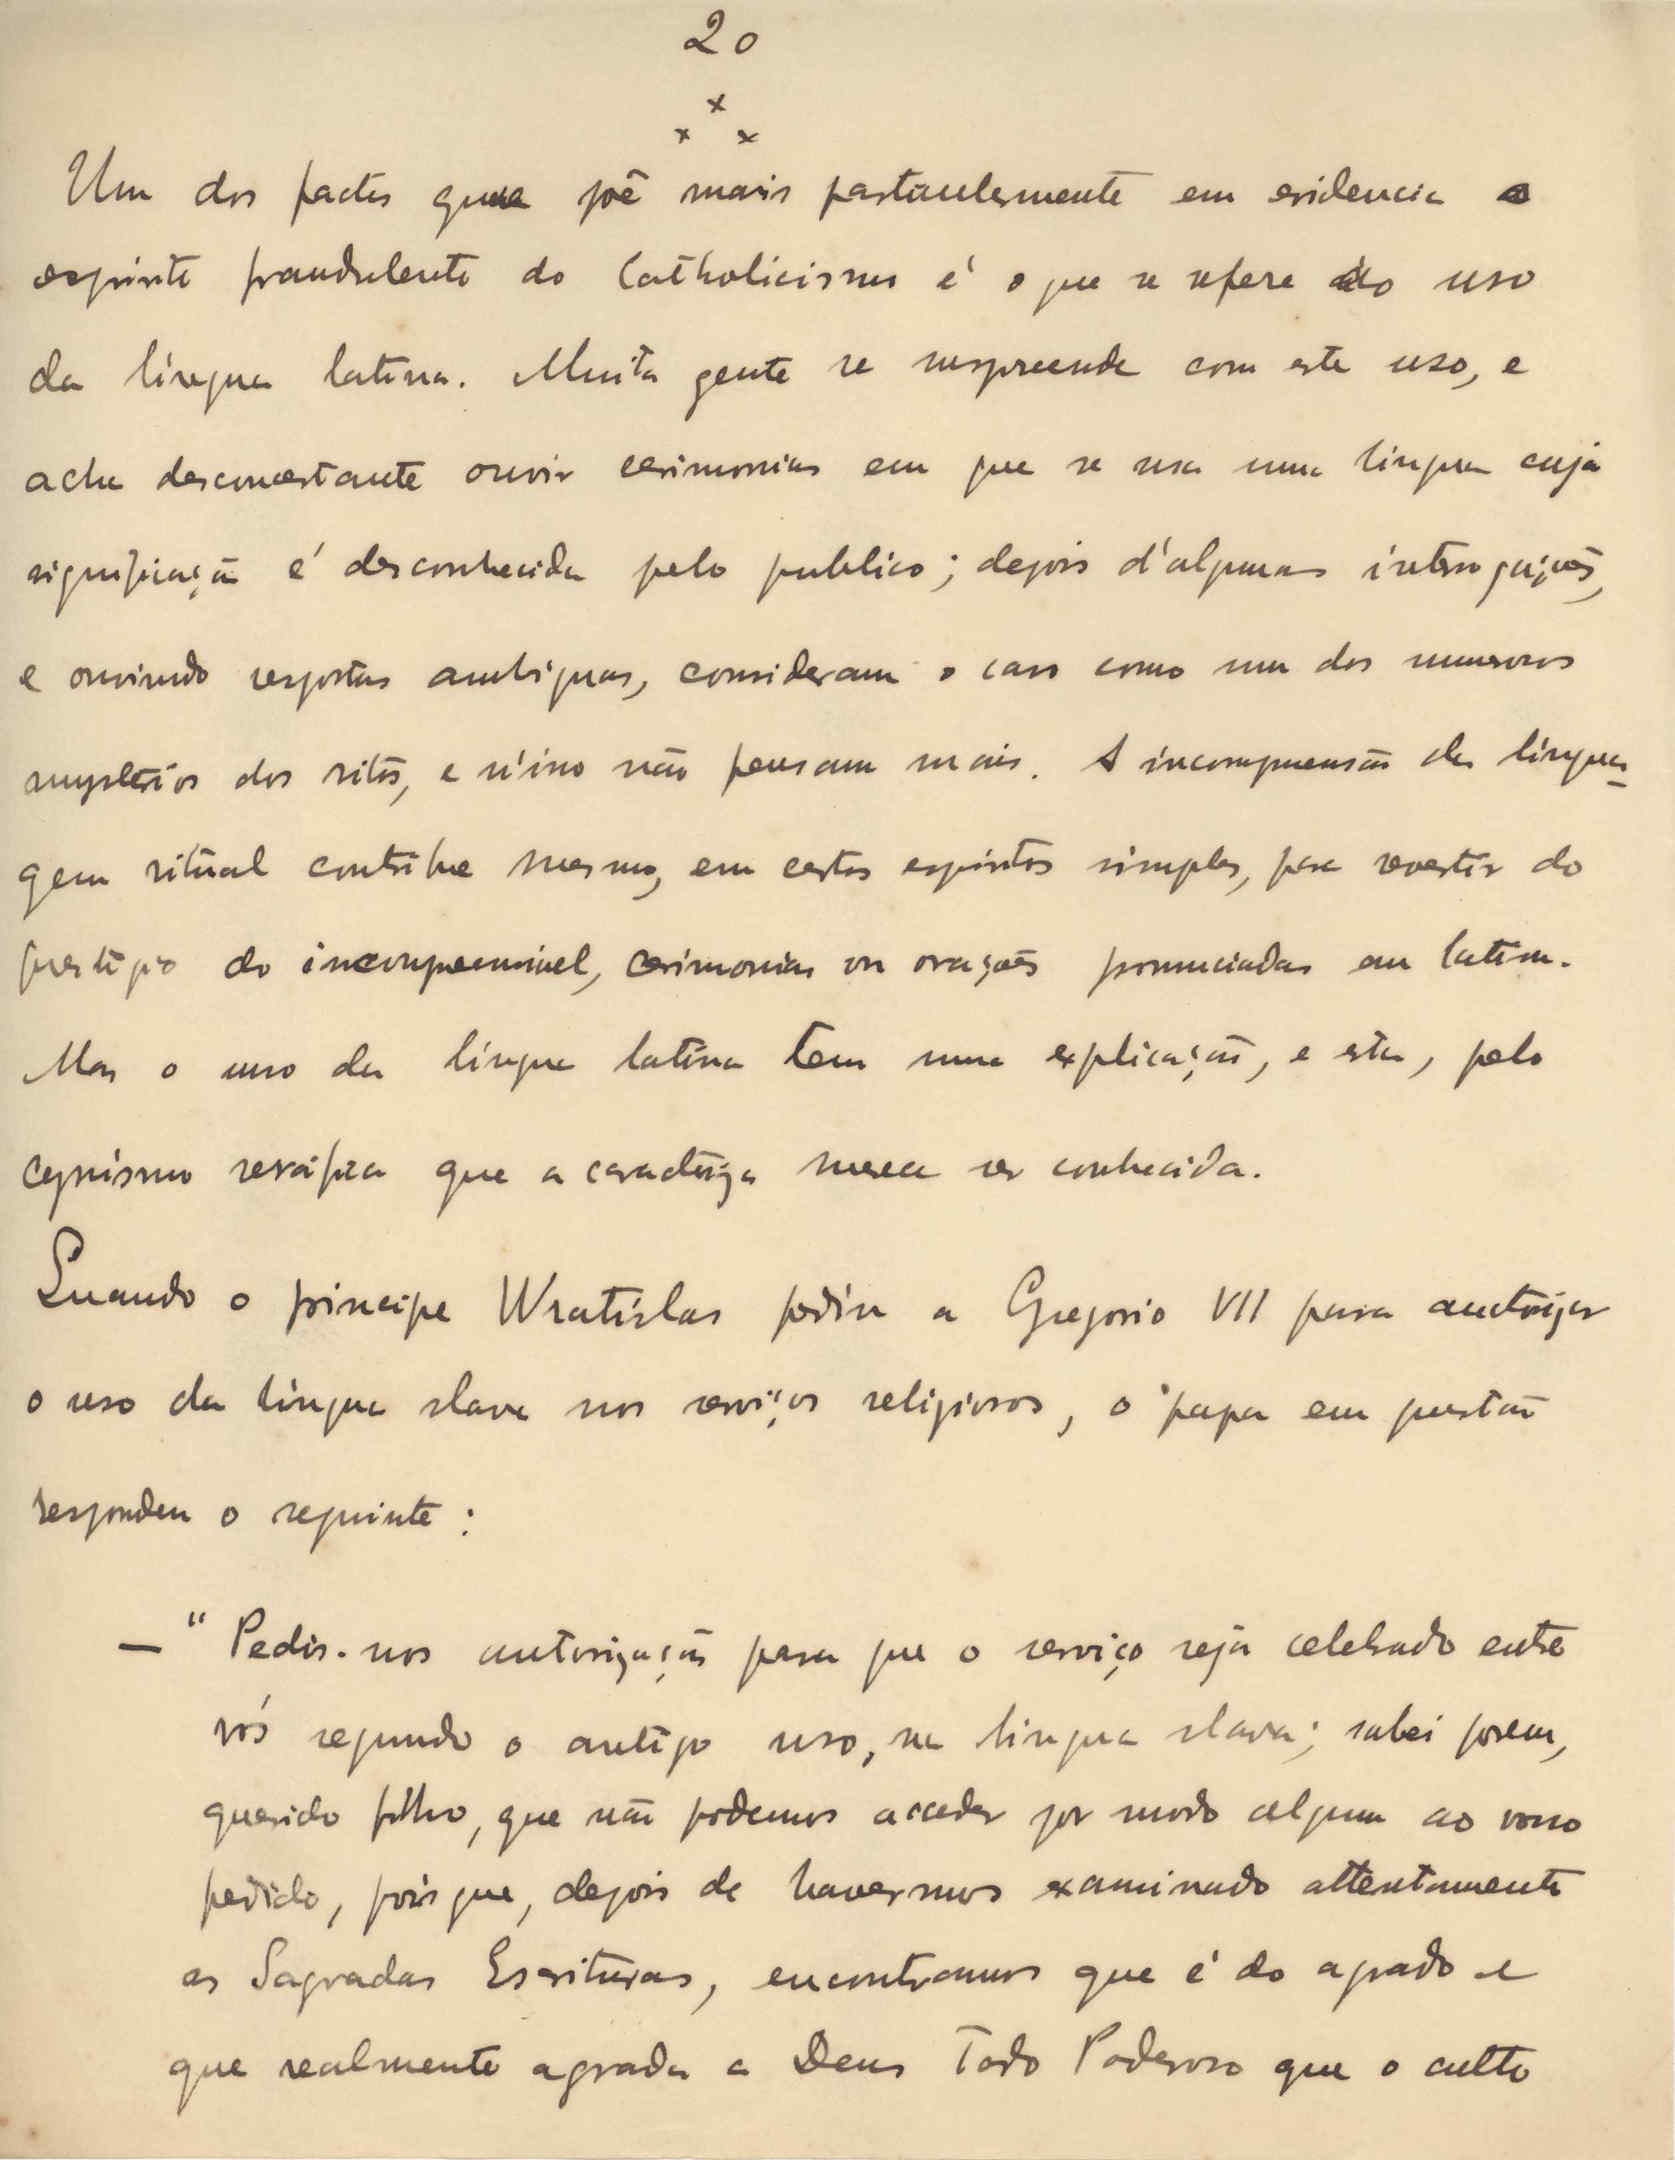 20
x
x x
Um dos factos que põe mais particularmente em evidencia o
espirito fraudulento do Catholicismo é o que se refere ao uso
da língua latina. Muita gente se surpreende com este uso, e
acha desconcertante ouvir cerimonias em que se usa uma lingua cuja
significação é desconhecida pelo publico; depois d'algumas interrogações,
e ouvindo respostas ambiguas, consideram o caso como um dos numerosos
mysterios dos ritos, e n'isso não pensam mais. A incompreensão da lingua-
gem ritual contribue mesmo, em certos espiritos simples, para revestir do
prestigio do incompreensivel, cerimonias ou orações pronunciadas em latim.
Mas o uso da língua latina tem uma explicação, e esta, pelo
cynismo que a caracteriza merece ser conhecida.
Quando o principe Wratislas pediu a Gregorio VII para auctorizar
o uso da língua slava nos serviços religiosos, o papa em questão
respondeu o seguinte:
— "Pedis-nos autorização para que o serviço seja celebrado entre
vós segundo o antigo uso, na lingua slava; sabei porem,
querido filho, que não podemos acceder por modo algum ao vosso
pedido, pois que, depois de havermos examinado attentamente
as Sagradas Escrituras, encontramos que é do agrado e
que realmente agrada a Deus Todo Poderoso que o culto